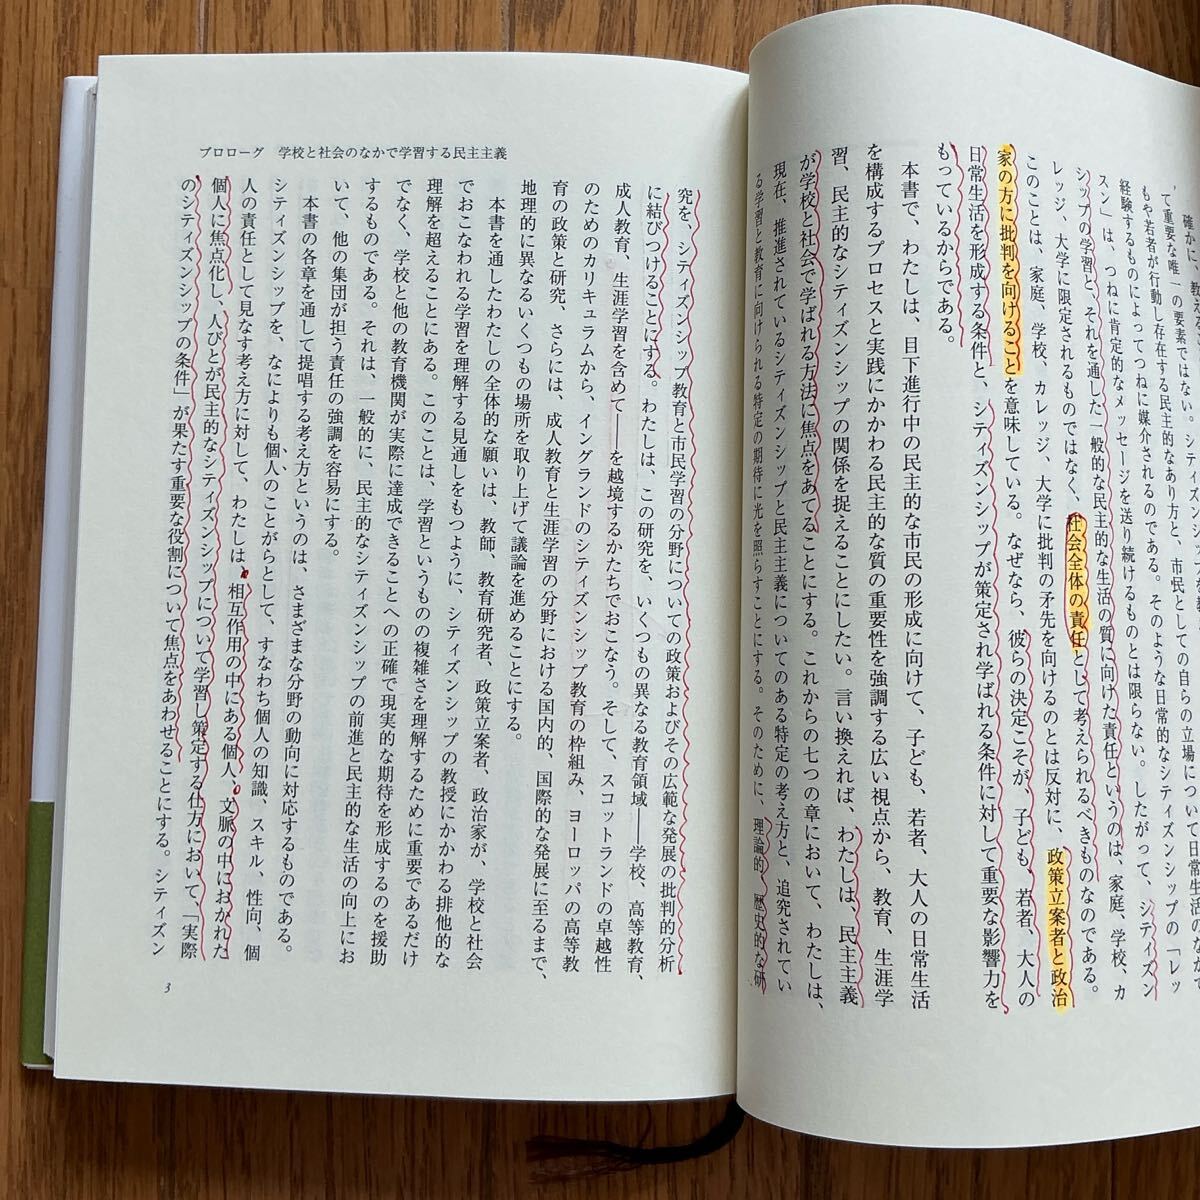 確かに、教え
て重要な唯一の要素ではない。シティズンシップを
もや若者が行動し存在する民主的なあり方と、市民としての自らの立場について日常生活のなかで
経験するものによってつねに媒介されるのである。そのような日常的なシティズンシップの「レッ
スン」は、つねに肯定的なメッセージを送り続けるものとは限らない。したがって、シティズン
シップの学習と、それを通した一般的な民主的な生活の質に向けた責任というのは、家庭、学校、カ
レッジ、大学に限定されるものではなく、社会全体の責任として考えられるべきものなのである。
このことは、家庭、学校、カレッジ、大学に批判の矛先を向けるのとは反対に、政策立案者と政治
家の方に批判を向けることを意味している。なぜなら、彼らの決定こそが、子ども、若者、大人の
日常生活を形成する条件と、シティズンシップが策定され学ばれる条件に対して重要な影響力を
もっているからである。
本書で、わたしは、目下進行中の民主的な市民の形成に向けて、子ども、若者、大人の日常生活
を構成するプロセスと実践にかかわる民主的な質の重要性を強調する広い視点から、教育、生涯学
習、民主的なシティズンシップの関係を捉えることにしたい。言い換えれば、わたしは、民主主義
が学校と社会で学ばれる方法に焦点をあてることにする。これからの七つの章において、わたしは、
現在、推進されているシティズンシップと民主主義についてのある特定の考え方と、追究されてい
る学習と教育に向けられる特定の期待に光を照らすことにする。そのために、理論的、歴史的な研
プロローグ　学校と社会のなかで学習する民主主義
究を、シティズンシップ教育と市民学習の分野についての政策およびその広範な発展の批判的分析
に結びつけることにする。わたしは、この研究を、いくつもの異なる教育領域——学校、高等教育、
成人教育、生涯学習を含めて——を越境するかたちでおこなう。そして、スコットランドの卓越性
のためのカリキュラムから、イングランドのシティズンシップ教育の枠組み、ヨーロッパの高等教
育の政策と研究、さらには、成人教育と生涯学習の分野における国内的、国際的な発展に至るまで、
地理的に異なるいくつもの場所を取り上げて議論を進めることにする。
本書を通したわたしの全体的な願いは、教師、教育研究者、政策立案者、政治家が、学校と社会
でおこなわれる学習を理解する見通しをもつように、シティズンシップの教授にかかわる排他的な
理解を超えることにある。このことは、学習というものの複雑さを理解するために重要であるだけ
でなく、学校と他の教育機関が実際に達成できることへの正確で現実的な期待を形成するのを援助
するものである。それは、一般的に、民主的なシティズンシップの前進と民主的な生活の向上にお
いて、他の集団が担う責任の強調を容易にする。
本書の各章を通して提唱する考え方というのは、さまざまな分野の動向に対応するものである。
シティズンシップを、なによりも個人のことがらとして、すなわち個人の知識、スキル、性向、個
人の責任として見なす考え方に対して、わたしは、相互作用の中にある個人、文脈の中におかれた
個人に焦点化し、人びとが民主的なシティズンシップについて学習し策定する仕方において、「実際
のシティズンシップの条件」が果たす重要な役割について焦点をあわせることにする。シティズン
3